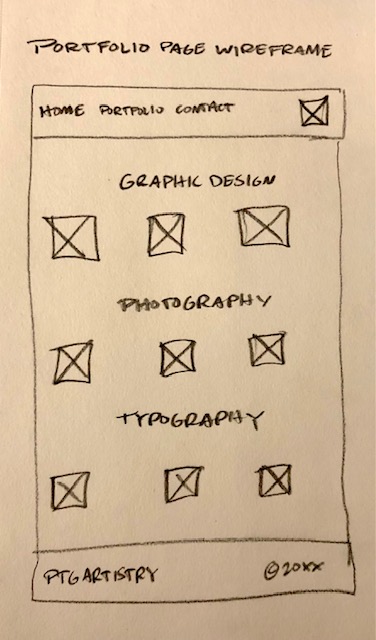 PORTFOLIO PAGE WIREFRAME
HOME PORTFOLIO CONTACT
GRAPHIC DESIGN
PHOTOGRAPHY
TYPOGRAPHY
PTGARTISTRY ©20XX